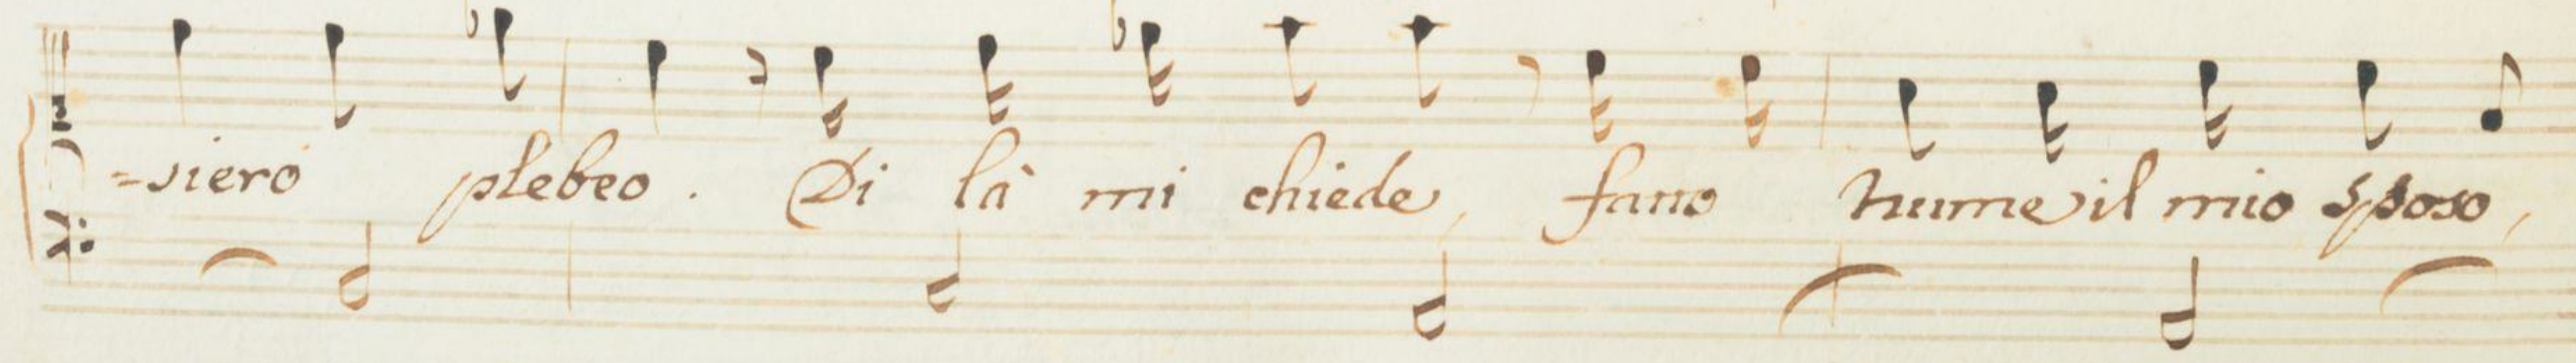 =siero plebeo. Di là mi chiede, fano nume il mio sposo,